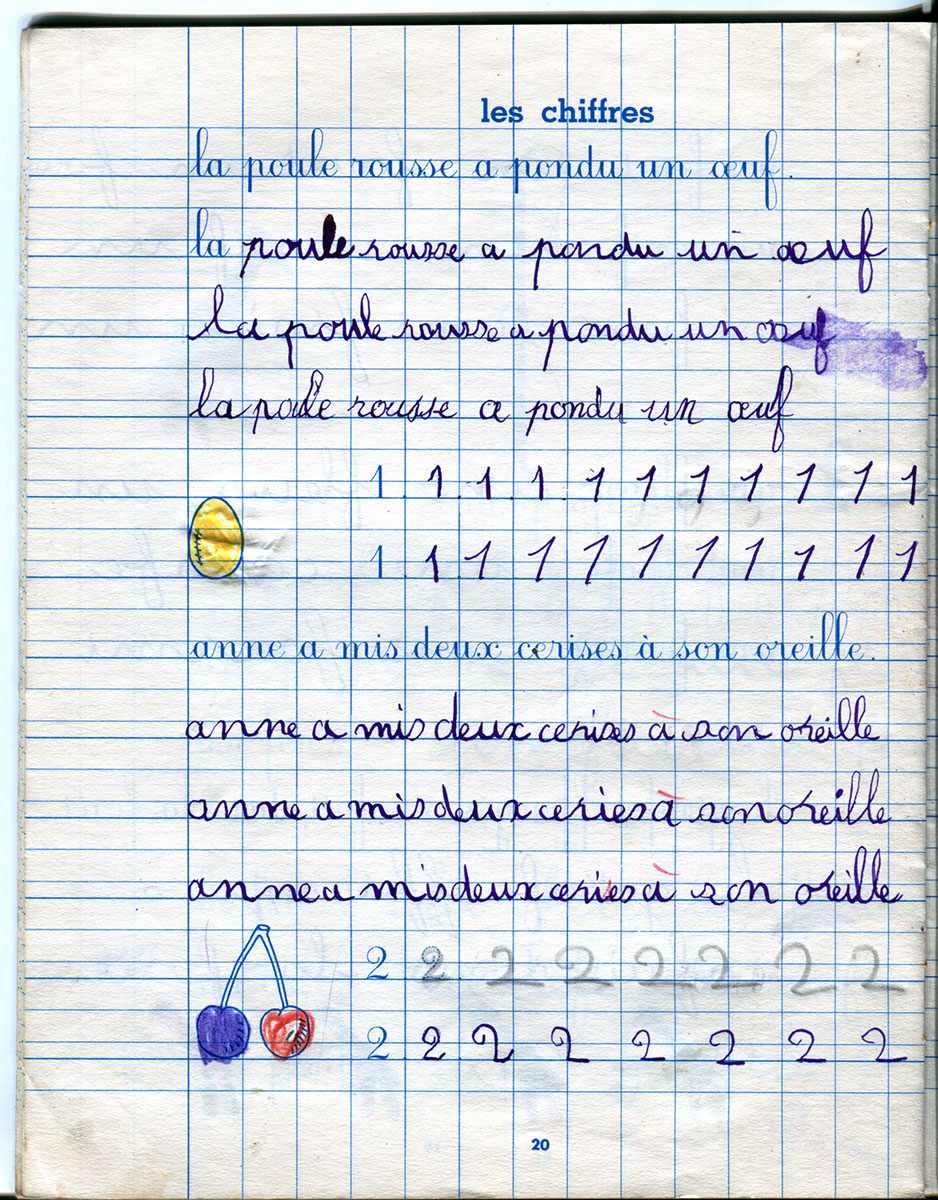 les chiffres
la poule rousse a pondu un œuf.
la poule rousse a pondu un œuf
la poule rousse a pondu un œuf
la poule rousse a pondu un œuf
1 1 1 1 1 1 1 1 1 1 1
1 1 1 1 1 1 1 1 1 1 1
anne a mis deux cerises à son oreille.
anne a mis deux cerises à son oreille
anne a mis deux ceries à son oreille
anne a mis deux ceries à son oreille
2 2 2 2 2 2 2 2
2 2 2 2 2 2 2 2
20